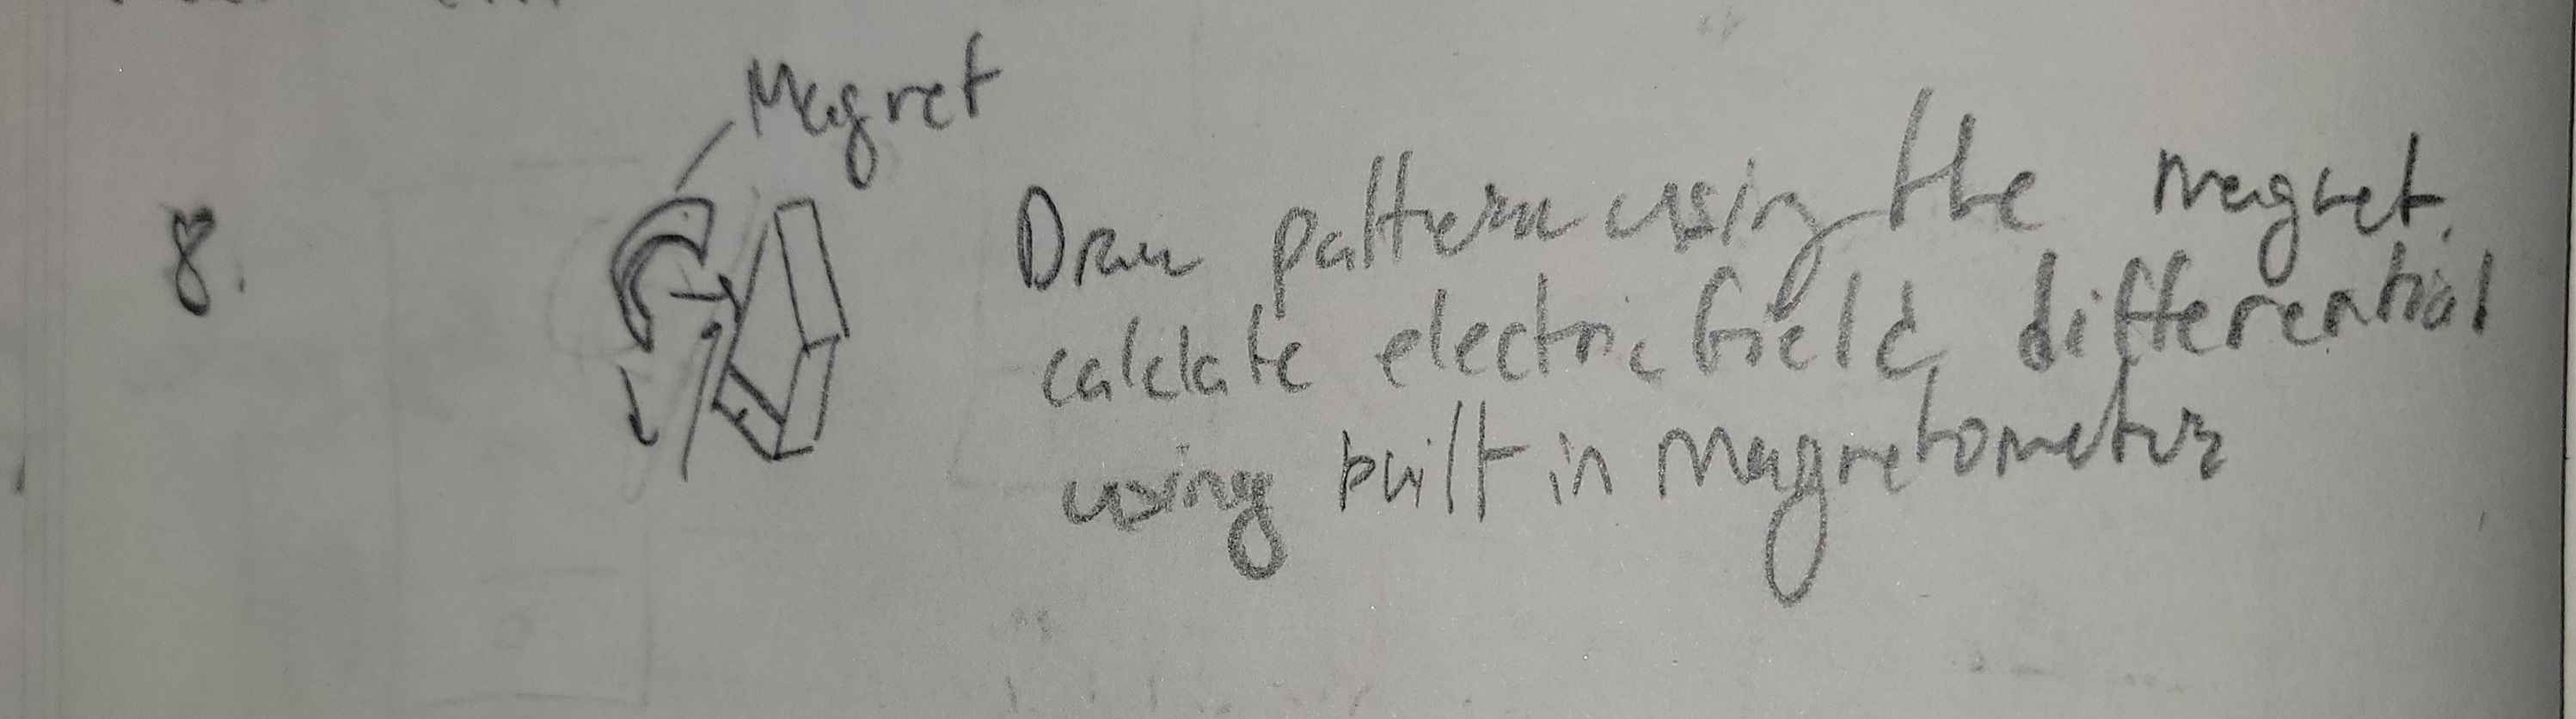 Magnet
8.
Draw pattern using the magnet.
calclate electric field differential
using built in magnetometer